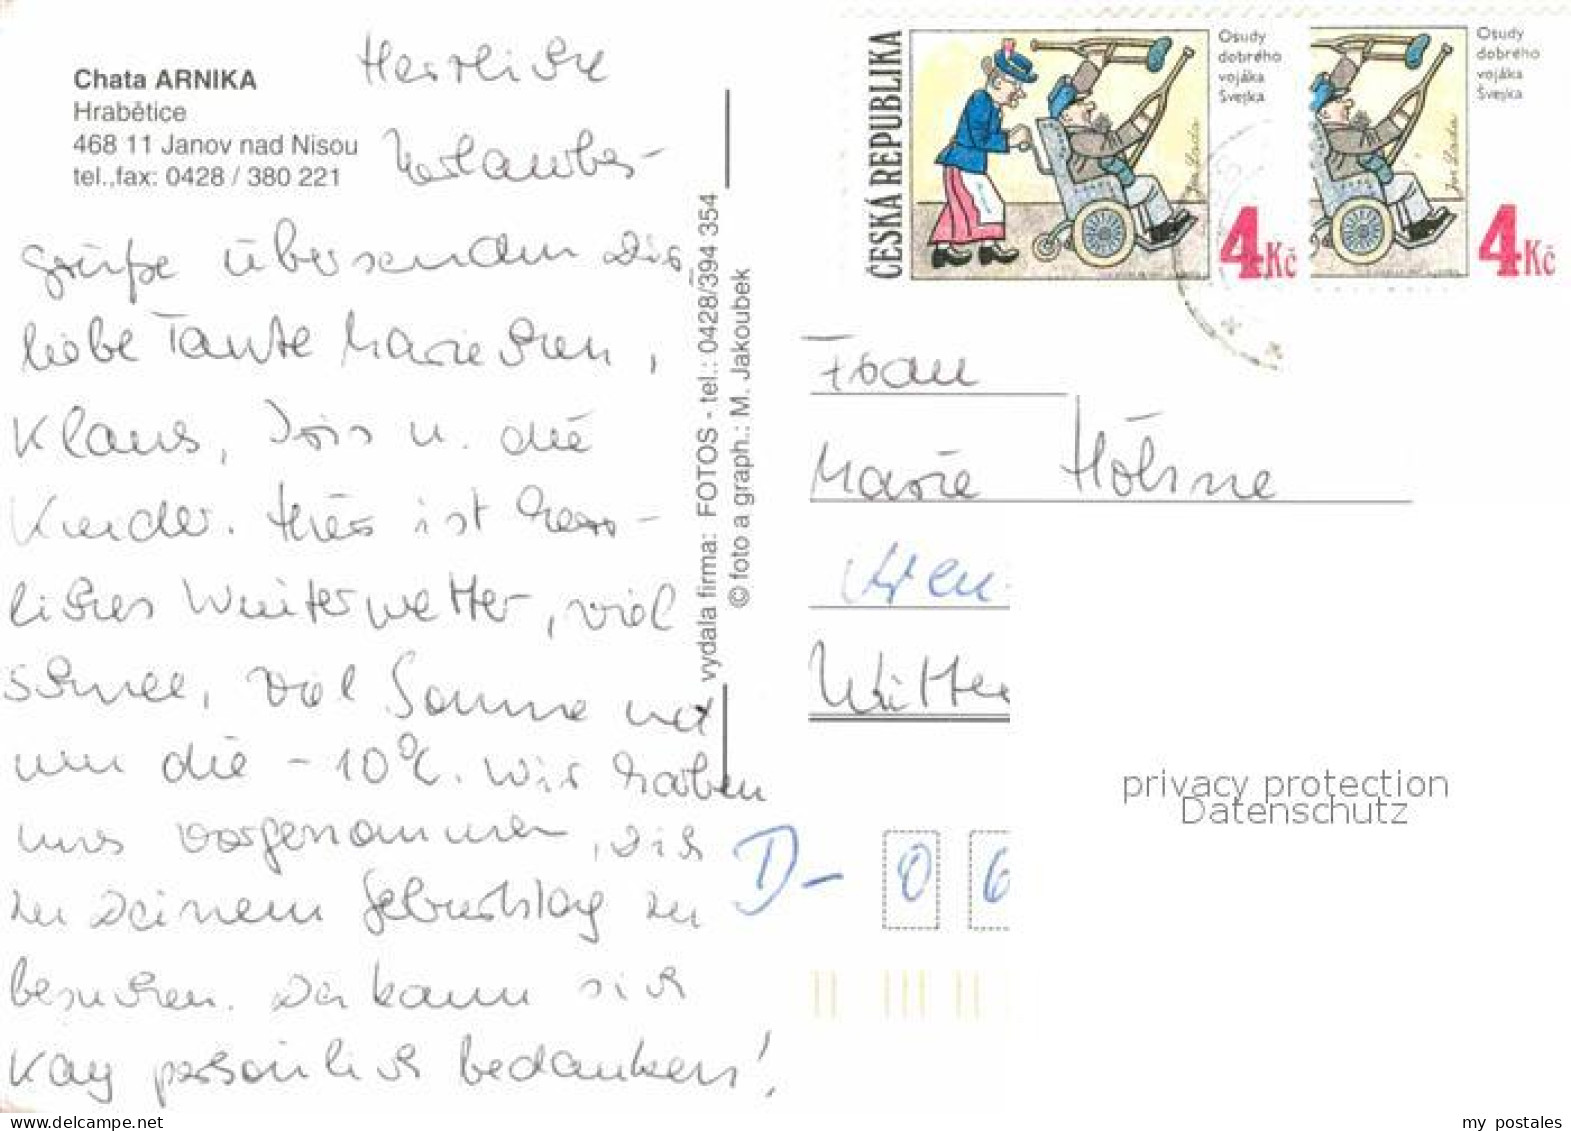 Chata ARNIKA
Hrabětice
468 11 Janov nad Nisou
tel.,fax: 0428 / 380 221
Herzliche
Urlaubs-
grüße übersenden Dir
liebe Tante Mariechen,
Klaus, Iris u. die
Kinder. Hier ist herr-
liches Winterwetter, viel
Schnee, viel Sonne und
um die -10°C. Wir haben
uns vorgenommen, Dich
zu Deinem Geburtstag zu
besuchen. Da kann sich
Kay persönlich bedanken!
vydala firma: FOTOS - tel.: 0428/394 354
© foto a graph.: M. Jakoubek
ČESKÁ REPUBLIKA
Osudy
dobrého
vojáka
Švejka
Jos. Lada
4Kč
Osudy
dobrého
vojáka
Švejka
Jos. Lada
4Kč
Frau
Marie Höhne
Witte
D- 0 6
privacy protection
Datenschutz
my_postales